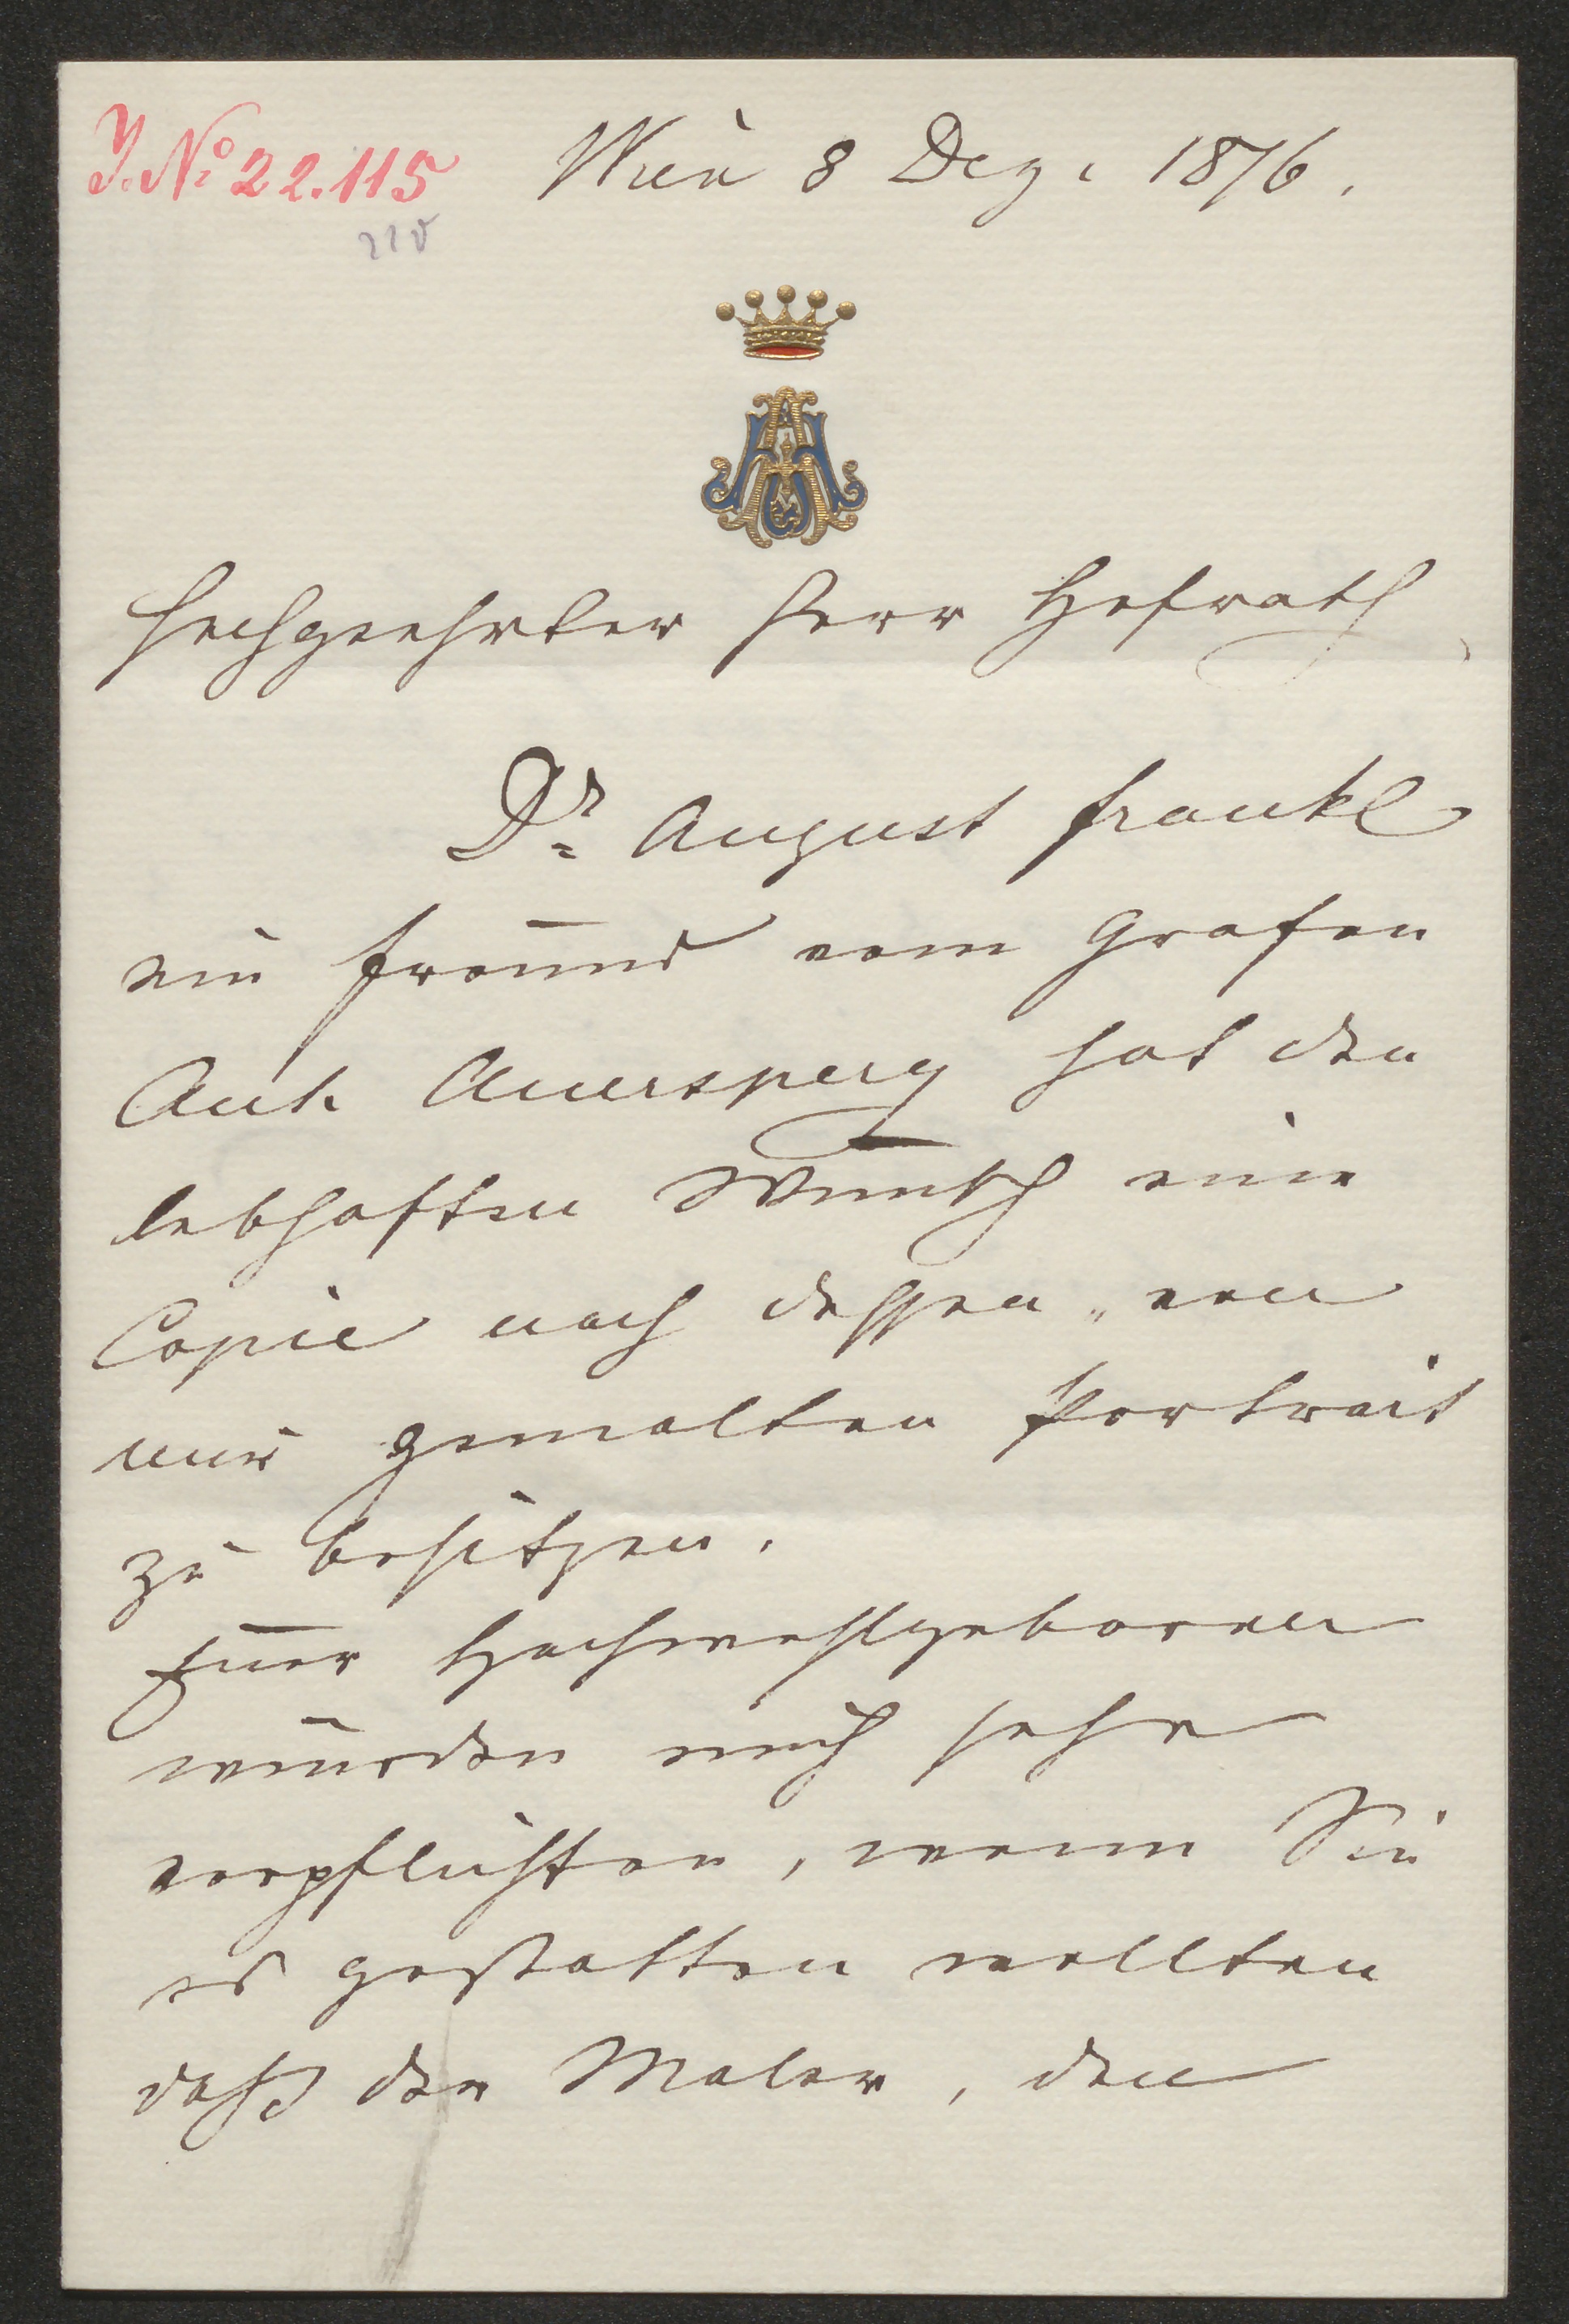 I. No 22.115
Wien 8 Dez. 1876.
Hochgeehrter Herr Hofrath,
Dr August Frankl
ein Freund vom Grafen
Ant. Auersperg hat den
lebhaften Wunsch eine
Copie nach dessen, von
mir gemalten Portrait
zu besitzen.
Euer Hochwohlgeboren
würden mich sehr
verpflichten, wenn Sie
es gestatten wollten
daß der Maler, den